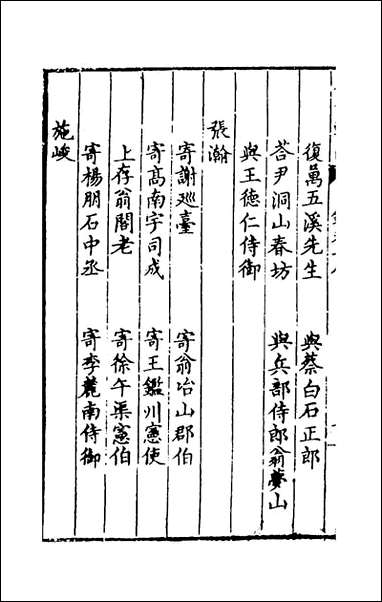 復萬五溪先生　與蔡白石正郎
荅尹洞山春坊　與兵部侍郎翁夢山
與王德仁侍御
張瀚
寄謝巡臺　寄翁冶山郡伯
寄高南宇司成　寄王鑑川憲使
上存翁閣老　寄徐午渠憲伯
寄楊朋石中丞　寄李麓南侍御
施峻